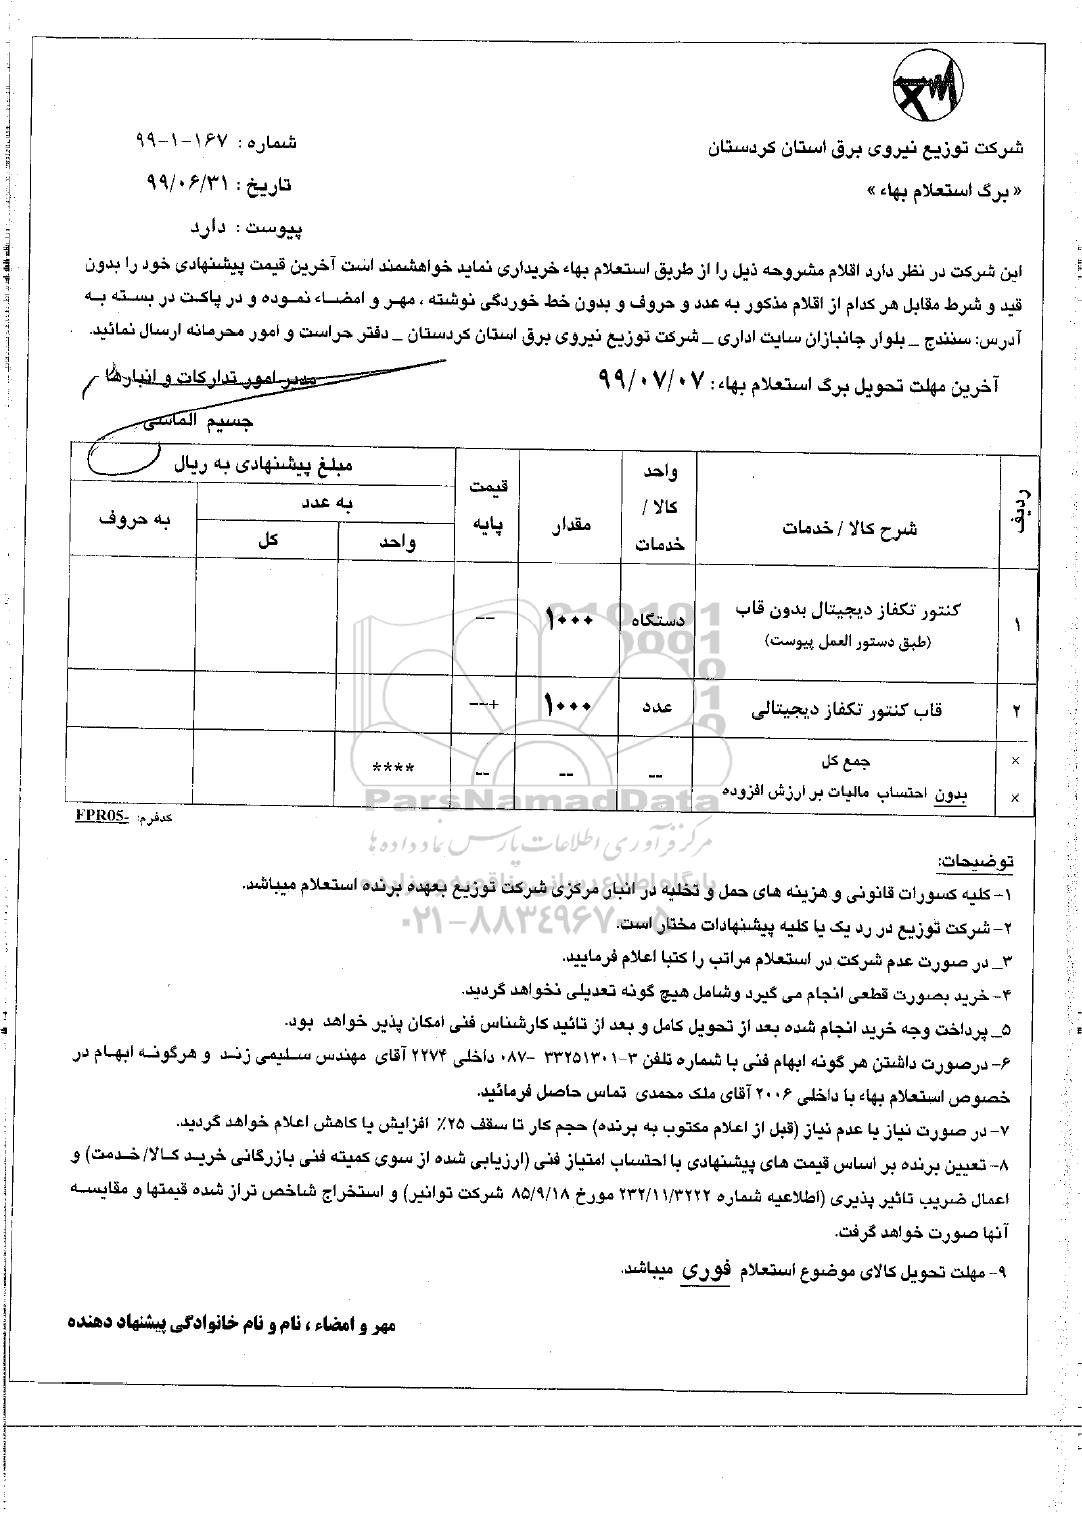 شرکت توزیع نیروی برق استان کردستان
« برگ استعلام بهاء »
شماره : ۱۶۷-۱-۹۹
تاریخ : ۹۹/۰۶/۳۱
پیوست : دارد
این شرکت در نظر دارد اقلام مشروحه ذیل را از طریق استعلام بهاء خریداری نماید خواهشمند است آخرین قیمت پیشنهادی خود را بدون
قید و شرط مقابل هر کدام از اقلام مذکور به عدد و حروف و بدون خط خوردگی نوشته ، مهر و امضاء نموده و در پاکت در بسته به
آدرس: سنندج _ بلوار جانبازان سایت اداری _ شرکت توزیع نیروی برق استان کردستان _ دفتر حراست و امور محرمانه ارسال نمائید.
آخرین مهلت تحویل برگ استعلام بهاء : ۹۹/۰۷/۰۷
مدیر امور تدارکات و انبارها
جسیم الماسی
ردیف
شرح کالا / خدمات
واحد
کالا /
خدمات
مقدار
قیمت
پایه
مبلغ پیشنهادی به ریال
به عدد
واحد
کل
به حروف
۱
کنتور تکفاز دیجیتال بدون قاب
(طبق دستور العمل پیوست)
دستگاه
۱۰۰۰
--
۲
قاب کنتور تکفاز دیجیتالی
عدد
۱۰۰۰
+--
×
جمع کل
×
بدون احتساب مالیات بر ارزش افزوده
--
--
--
****
کدفرم: FPR05-
ParsNamadData
مرکز فرآوری اطلاعات پارس نماد داده ها
۰۲۱-۸۸۳۴۹۶۷۰-۵
توضیحات:
۱- کلیه کسورات قانونی و هزینه های حمل و تخلیه در انبار مرکزی شرکت توزیع بعهده برنده استعلام میباشد.
۲- شرکت توزیع در رد یک یا کلیه پیشنهادات مختار است.
۳_ در صورت عدم شرکت در استعلام مراتب را کتبا اعلام فرمایید.
۴- خرید بصورت قطعی انجام می گیرد وشامل هیچ گونه تعدیلی نخواهد گردید.
۵_ پرداخت وجه خرید انجام شده بعد از تحویل کامل و بعد از تائید کارشناس فنی امکان پذیر خواهد بود.
۶- درصورت داشتن هر گونه ابهام فنی با شماره تلفن ۳-۳۳۲۵۱۳۰۱ -۰۸۷ داخلی ۲۲۷۴ آقای مهندس سلیمی زند و هرگونه ابهام در
خصوص استعلام بهاء با داخلی ۲۰۰۶ آقای ملک محمدی تماس حاصل فرمائید.
۷- در صورت نیاز یا عدم نیاز (قبل از اعلام مکتوب به برنده) حجم کار تا سقف ۲۵٪ افزایش یا کاهش اعلام خواهد گردید.
۸- تعیین برنده بر اساس قیمت های پیشنهادی با احتساب امتیاز فنی (ارزیابی شده از سوی کمیته فنی بازرگانی خرید کالا/ خدمت) و
اعمال ضریب تاثیر پذیری (اطلاعیه شماره ۲۳۲/۱۱/۳۲۲۲ مورخ ۸۵/۹/۱۸ شرکت توانیر) و استخراج شاخص تراز شده قیمتها و مقایسه
آنها صورت خواهد گرفت.
۹- مهلت تحویل کالای موضوع استعلام فوری میباشد.
مهر و امضاء ، نام و نام خانوادگی پیشنهاد دهنده